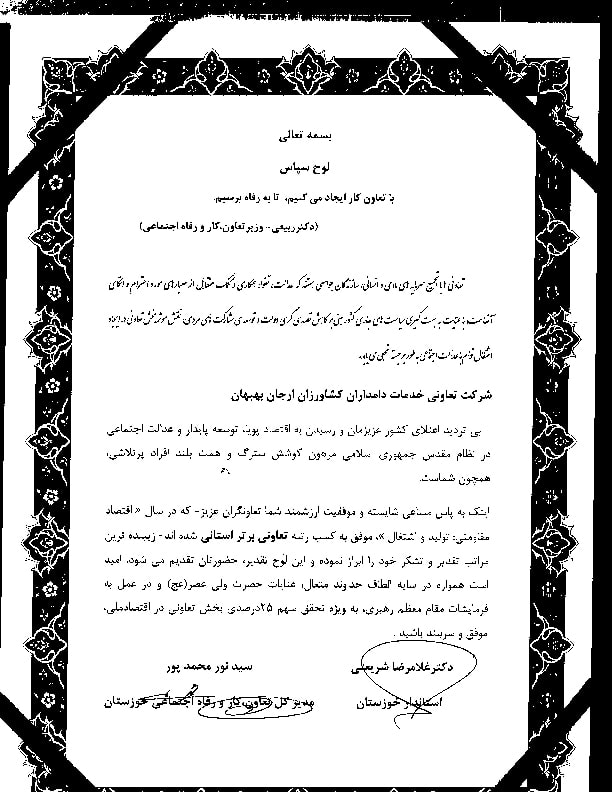 بسمه تعالی
لوح سپاس
با تعاون کار ایجاد می کنیم، تا به رفاه برسیم.
(دکترربیعی- وزیرتعاون،کار و رفاه اجتماعی)
تعاونی ها با تجمیع سرمایه های مادی و انسانی، سازندگان جوامعی هستند که عدالت، تقوا، همکاری و کمک متقابل از معیارهای مورد احترام و اتکای
آنهاست. با عنایت به جهت گیری سیاست های جدی کشور مبنی بر کاهش تصدی گری دولت و توسعه ی مشارکت های مردمی، نقش موثر بخش تعاونی در ایجاد
اشتغال توام با عدالت اجتماعی به طور برجسته تجلی می یابد.
شرکت تعاونی خدمات دامداران کشاورزان ارجان بهبهان
بی تردید اعتلای کشور عزیزمان و رسیدن به اقتصاد پویا، توسعه پایدار و عدالت اجتماعی
در نظام مقدس جمهوری اسلامی مرهون کوشش سترگ و همت بلند افراد پرتلاشی،
همچون شماست.
اینک به پاس مساعی شایسته و موفقیت ارزشمند شما تعاونگران عزیز- که در سال « اقتصاد
مقاومتی: تولید و اشتغال »، موفق به کسب رتبه تعاونی برتر استانی شده اند- زیبنده ترین
مراتب تقدیر و تشکر خود را ابراز نموده و این لوح تقدیر، حضورتان تقدیم می شود. امید
است همواره در سایه الطاف خداوند متعال، عنایات حضرت ولی عصر(عج) و در عمل به
فرمایشات مقام معظم رهبری، به ویژه تحقق سهم ۲۵درصدی بخش تعاونی در اقتصادملی،
موفق و سربلند باشید .
دکترغلامرضا شریعتی
استاندار خوزستان
سید نور محمد پور
مدیر کل تعاون،کار و رفاه اجتماعی خوزستان